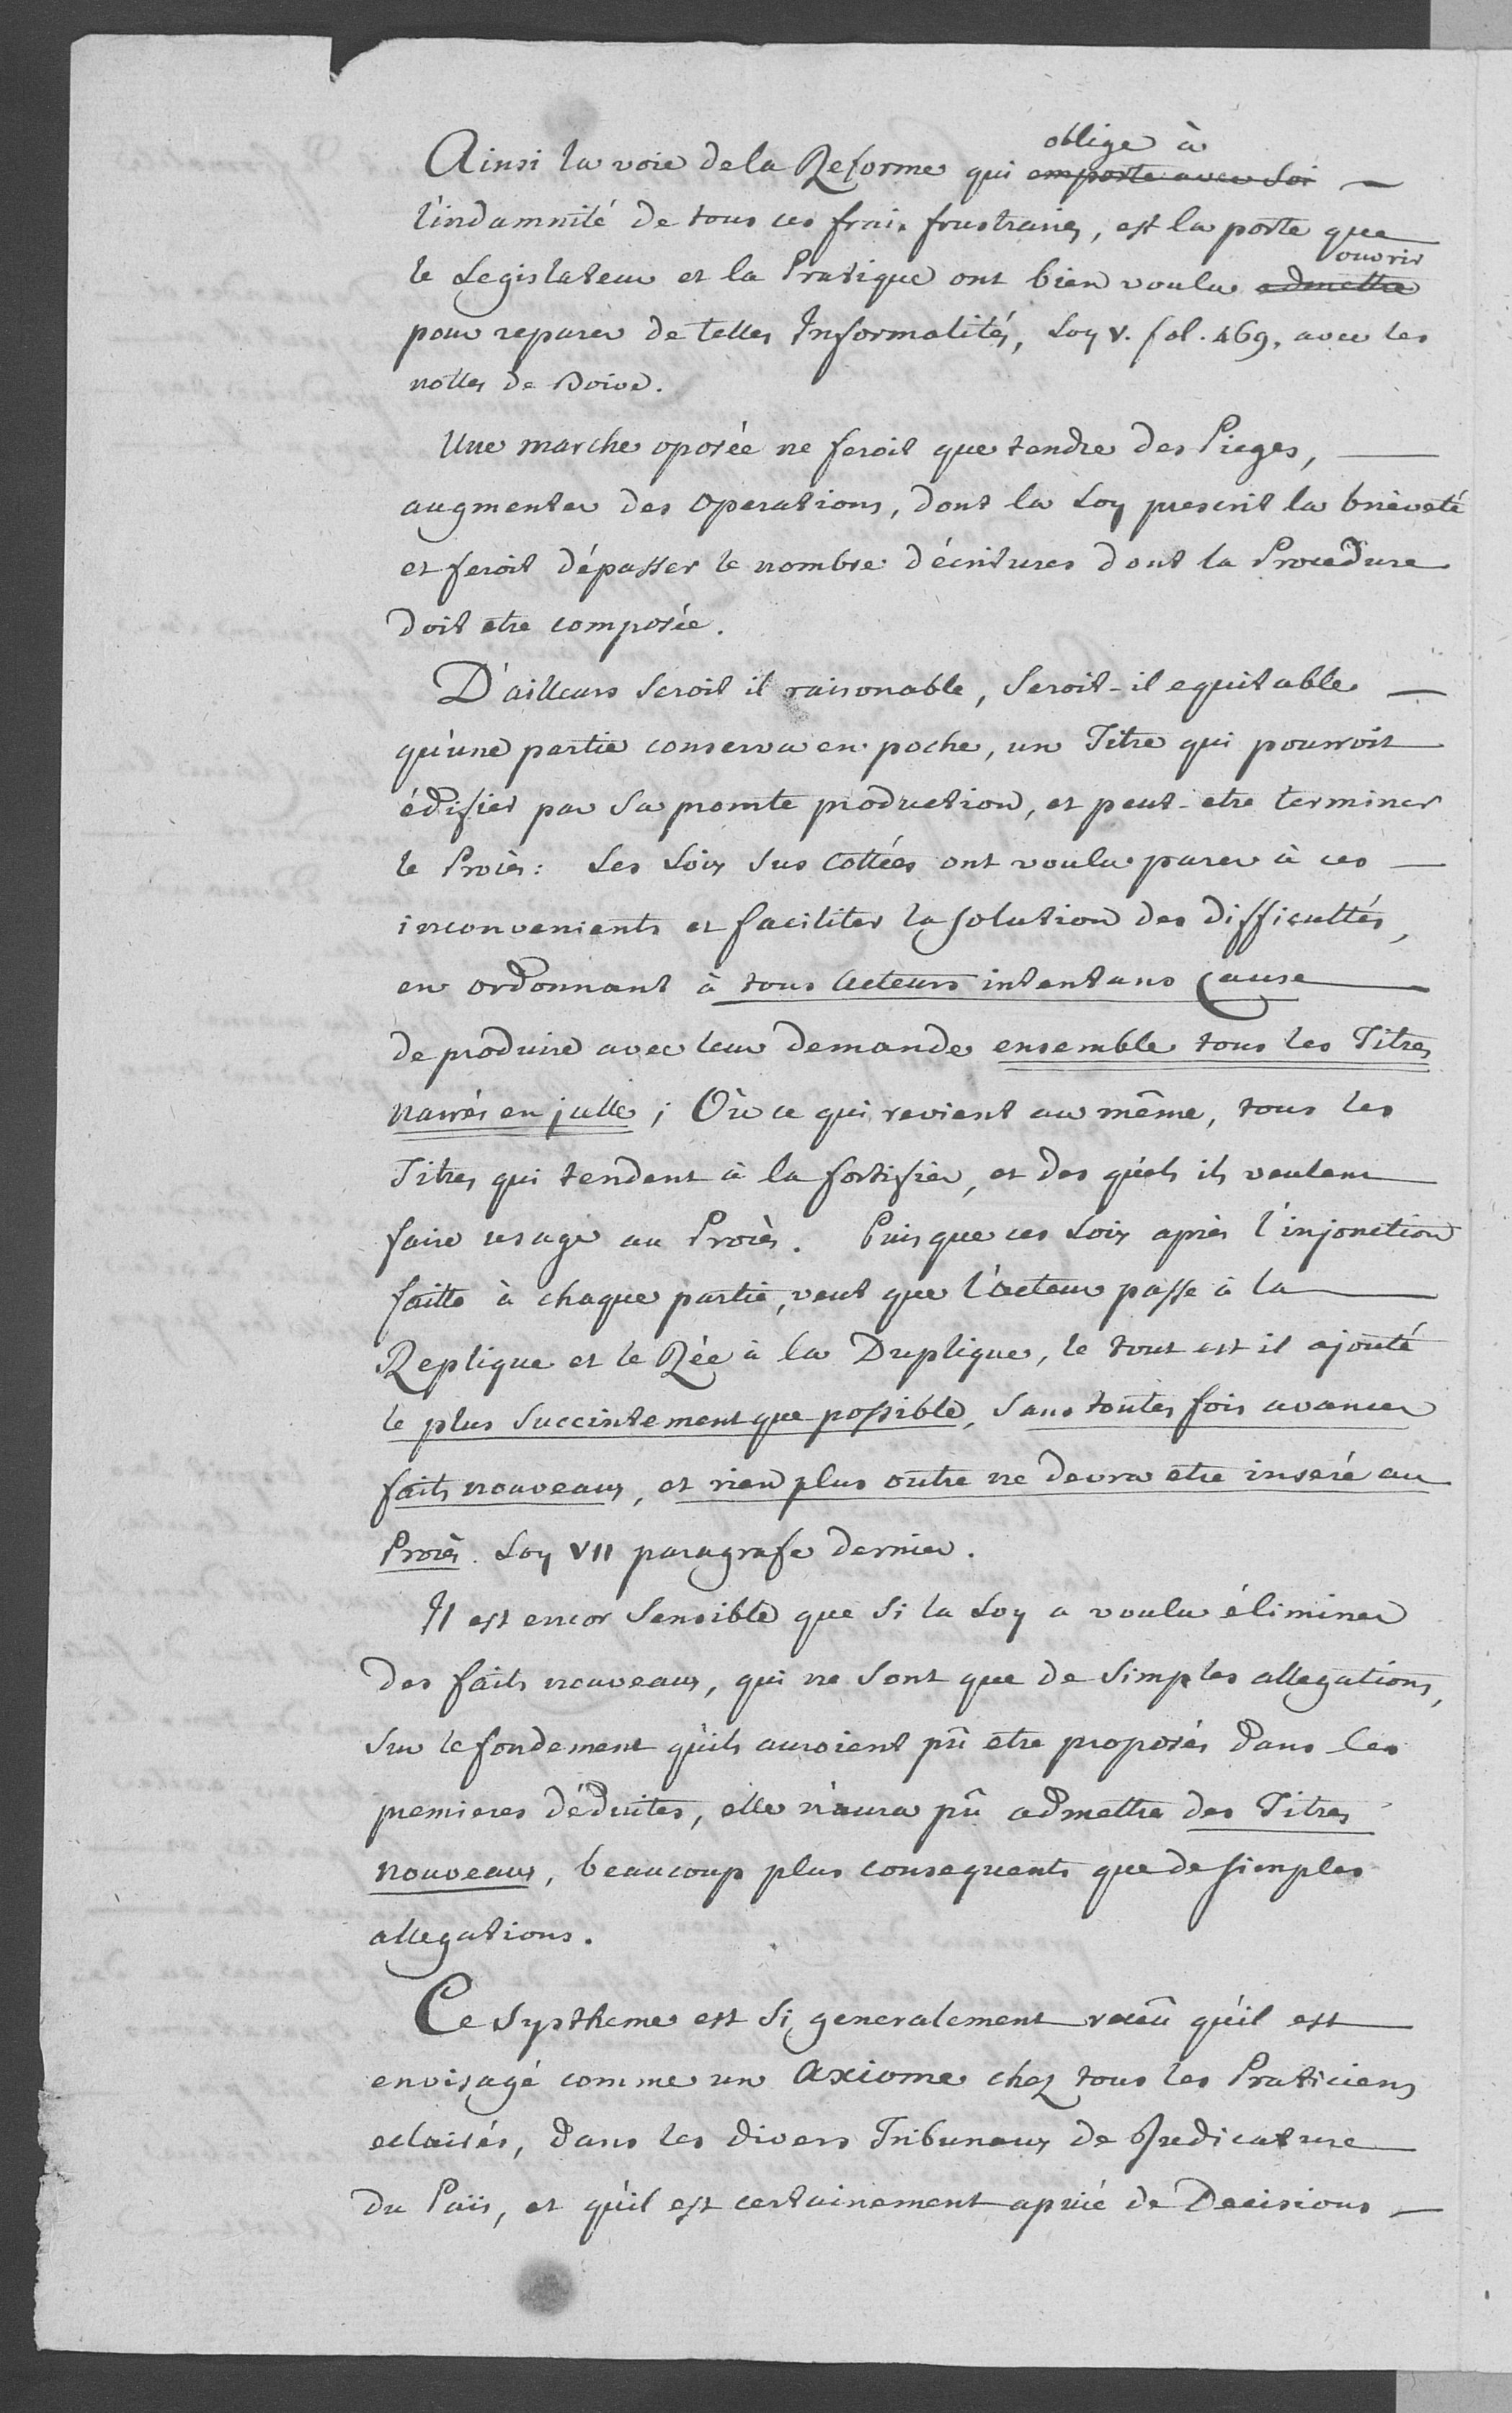 Ainsi la voie de la Reforme qui emporte avec soi oblige à —
l'indamnité de tous ces frais frustraires, est la porte que
le Legislateur et la Pratique ont bien voulu admettre ouvrir
pour reparer de telles Informalités, Loy V. fol. 469, avec les
nottes de Boive.
Une marche oposée ne feroit que tendre des Pieges, —
augmenter des operations, dont la Loy prescrit la briéveté
et feroit dépasser le nombre d'écritures dont la Procedure
doit etre composée.
D'ailleurs seroit il raisonable, seroit-il equitable —
qu'une partie conserva en poche, un Titre qui pourroit
édifier par sa promte production, et peut-etre terminer
le Procès: Les Loix sus cottées ont voulu parer à ces —
inconvenients et faciliter la solution des difficultés,
en ordonnant à tous acteurs intentans Cause
de produire avec leur demande ensemble tous les Titres
narrés en jcelle; Où ce qui revient au même, tous les
Titres qui tendent à la fortifier, et des quels ils veulent
faire usage au Procès. Puis que ces Loix après l'injonction
faitte à chaque partie, veut que l'acteur passe à la
Replique et le Rée à la Duplique, le tout est il ajouté
le plus succintement que possible, sans toutes fois avancer
faits nouveaux, et rien plus outre ne devra etre inseré au
Procès. Loy VII paragrafe dernier.
Il est encor sensible que si la Loy a voulu éliminer
des faits nouveaux, qui ne sont que de simples allegations,
sur le fondement qu'ils auroient pû etre proposés dans les
premieres déduites, elle n'aura pû admettre des Titres
nouveaux, beaucoup plus consequents que de simples
allegations.
Ce systheme est si generalement recû qu'il est
envisagé comme un axiome chez tous les Praticiens
eclairés, dans les divers Tribunaux de Judicature
du Païs, et qu'il est certainement apuié de Decisions —